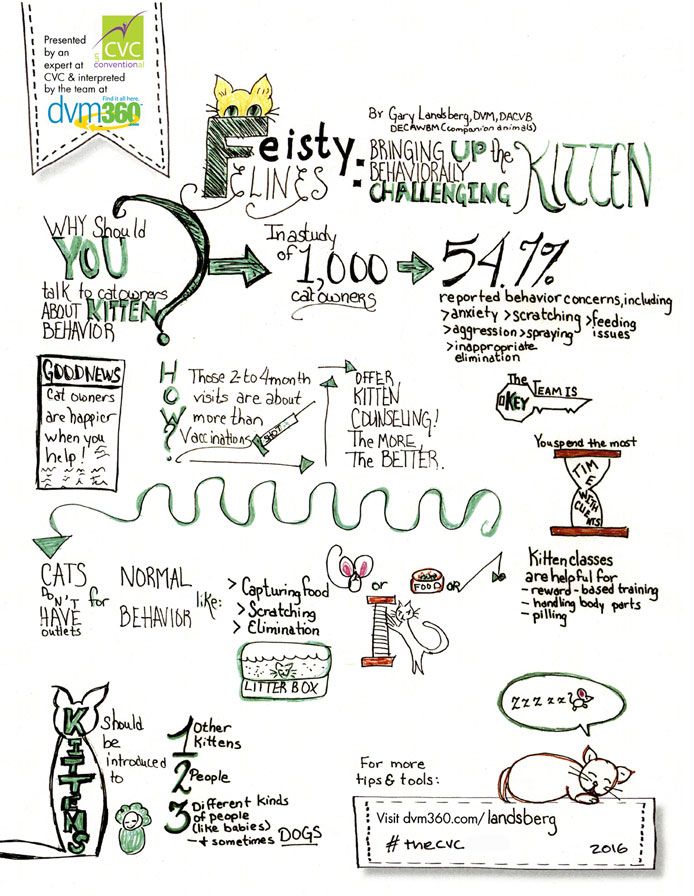 Presented
by an
expert at
CVC & interpreted
by the team at
CVC
unconventional
Find it all here.
dvm360.com
By Gary Landsberg, DVM, DACVB
DECAWBM (companion animals)
Feisty
FELINES:
BRINGING UP the
BEHAVIORALLY
CHALLENGING
KITTEN
WHY Should
YOU
talk to cat owners
ABOUT KITTEN
BEHAVIOR
?
In a study
of 1,000
cat owners
54.7%
reported behavior concerns, including
>anxiety >scratching >feeding
issues
>aggression >spraying
>inappropriate
elimination
GOOD NEWS
Cat owners
are happier
when you
help!
HOW?
Those 2-to 4month
visits are about
more than
Vaccinations
SHOT
OFFER
KITTEN
COUNSELING!
The MORE,
The BETTER.
The
TEAM IS
KEY
You spend the most
TIME
WITH
CLIENTS
Kitten classes
are helpful for
- reward-based training
- handling body parts
- pilling
CATS
DON'T
HAVE
outlets
for
NORMAL
BEHAVIOR
like:
> Capturing food
> Scratching
> Elimination
or
FOOD
OR
LITTER BOX
KITTENS
should
be
introduced
to
1 Other
Kittens
2 People
3 Different kinds
of people
(like babies)
-+ sometimes DOGS
Zzzzzz
For more
tips & tools:
Visit dvm360.com/landsberg
#thecvc
2016